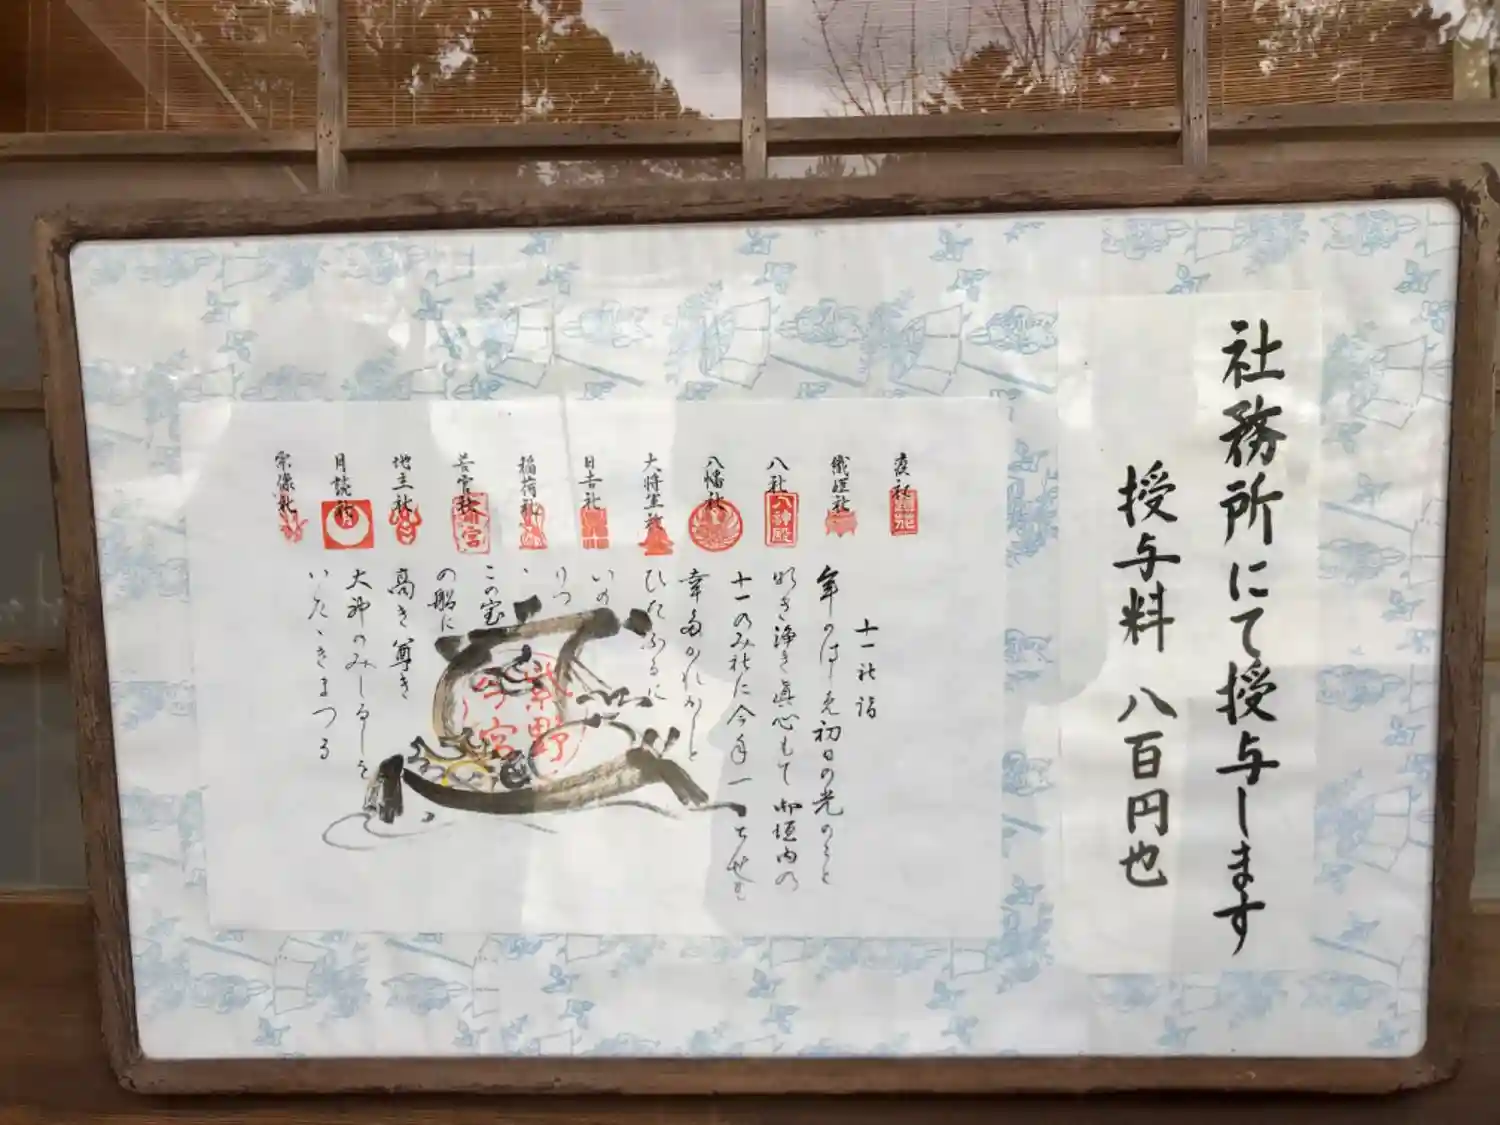 社務所にて授与します
授与料 八百円也
疫社
織姫社
八社
八幡社
大将軍社
日吉社
稲荷社
若宮社
地主社
月読社
宗像社
八神殿
十一社詣
年のはじめ初日の光のもと
明き浄き真心もて御垣内の
十一のみ社に今年一とせも
幸多かれかしと
ひたふるに
いの
りつ
この宝
の船に
高き尊き
大神のみしるしを
いたゞきまつる
紫野
今宮